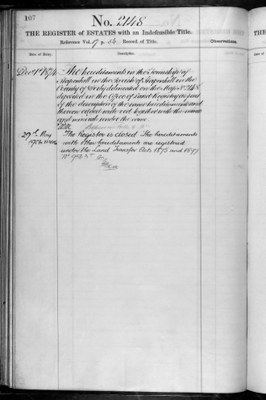 107
No. 2148
THE REGISTER of ESTATES with an Indefeasible Title.
Reference Vol. 17 p. Record of Title.
Date of Entry.
Description.
Observations.
The hereditaments in the Township of
in the Parish of in the
County of York delineated on the Map No. 2148
deposited in the Office of Land Registry as part
of the description of the same hereditaments and
thereon edged with red together with the mines
and minerals under the same
29th May
The Register is closed. The hereditaments
with other hereditaments are registered
under the Land Transfer Acts 1875 and 1897